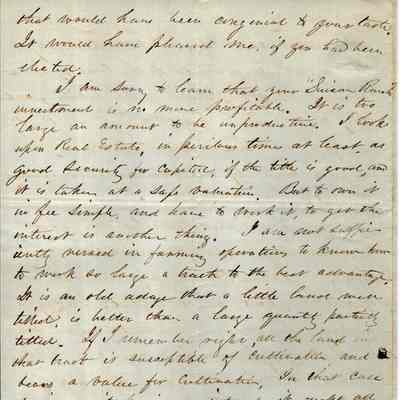 that would have been congenial to your taste.
It would have pleased me, if you had been
elected.
I am sorry to learn that your "Suisun Ranch"
investment is no more profitable. It is too
large an amount to be unproductive. I look
upon Real Estate, in perilous times at least, as
good security for capital, if the title is good, and
it is taken at a safe valuation. But to own it
in fee simple, and have to work it, to get the
interest is another thing. I am not suffic-
iently versed in farming operations to know how
to work so large a tract to the best advantage.
It is an old adage that a little land well
tilled, is better than a large quantity partially
tilled. If I remember right, all the land in
that tract is susceptible of cultivation and
bears a value for cultivation. In that case